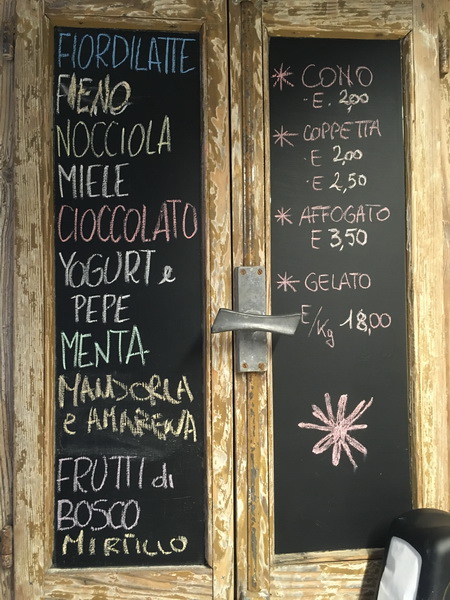 FIORDILATTE
FIENO
NOCCIOLA
MIELE
CIOCCOLATO
YOGURT e
PEPE
MENTA
MANDORLA
e AMARENA
FRUTTI di
BOSCO
MIRTILLO
* CONO
E. 2,00
* COPPETTA
E 2,00
E 2,50
* AFFOGATO
E 3,50
* GELATO
E/Kg 18,00